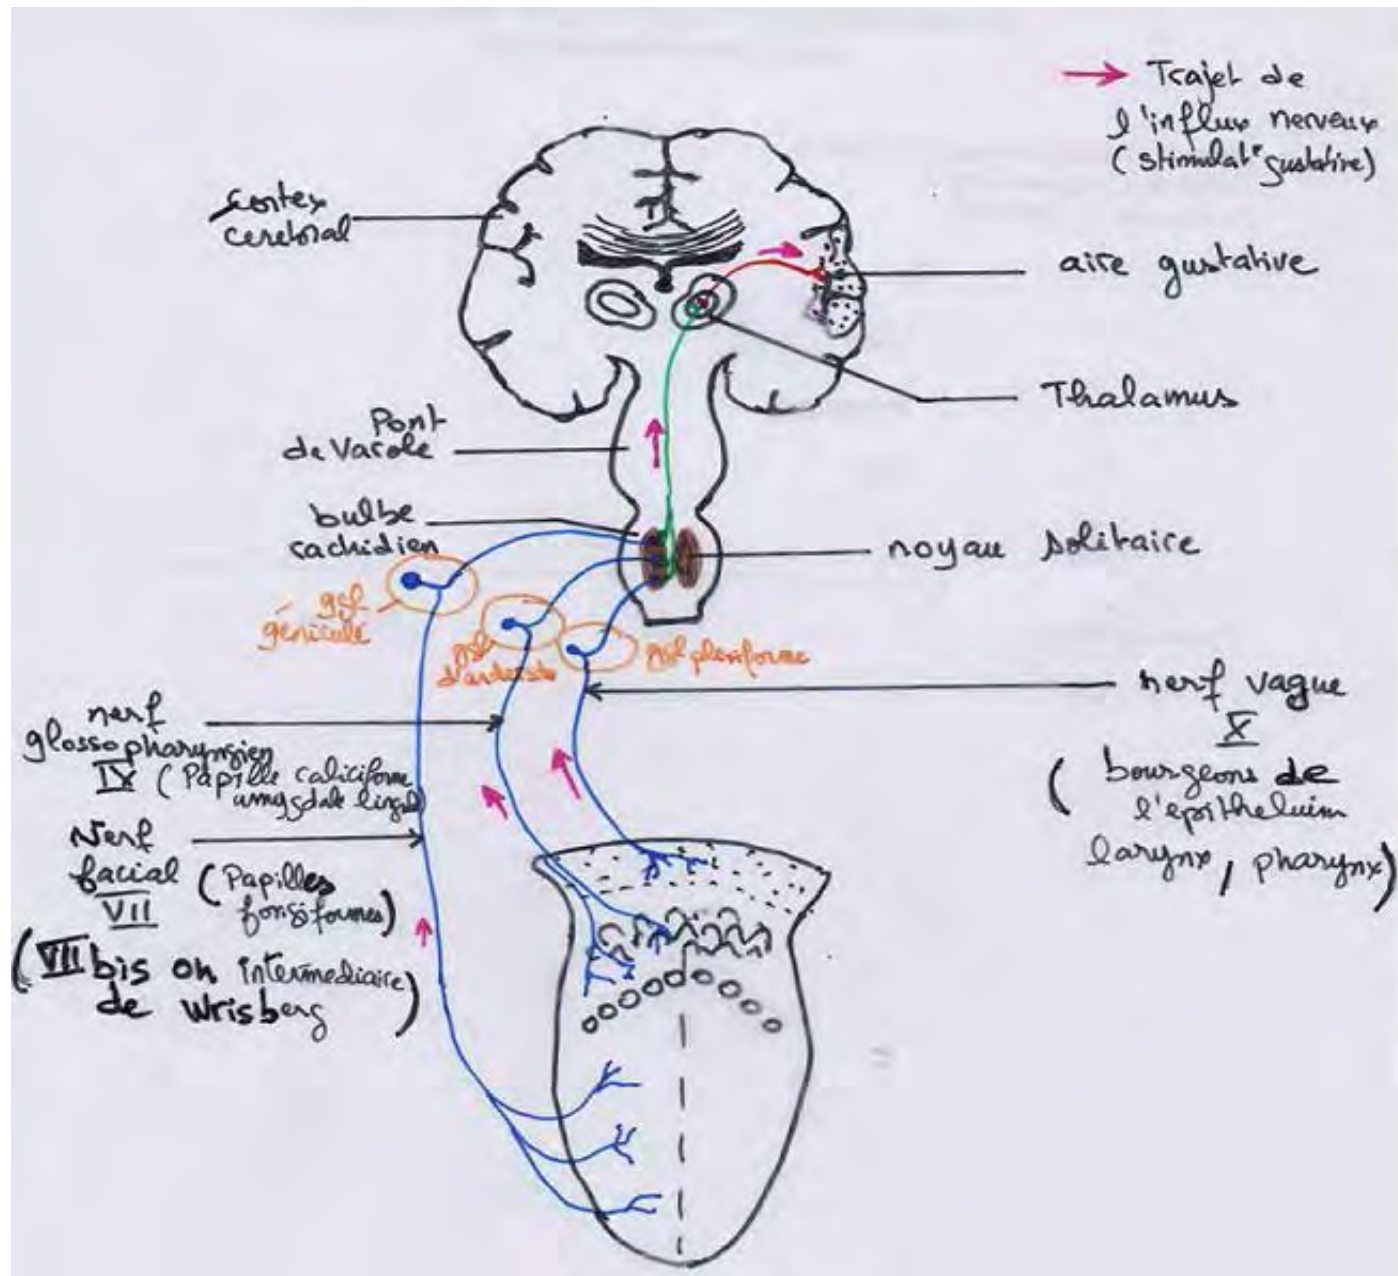 Trajet de
l'influx nerveux
(stimulat° gustative)
cortex
cerebral
aire gustative
Thalamus
Pont
de Varole
bulbe
rachidien
noyau solitaire
ggl
géniculé
ggl
d'andersh
ggl plexiforme
nerf vague
X
(bourgeons de
l'epitheluim
larynx, pharynx)
nerf
glossopharyngien
IX (Papille caliciforme
amygdale lingual)
Nerf
facial (Papilles
VII fongiformes)
(VII bis ou intermediaire
de Wrisberg)